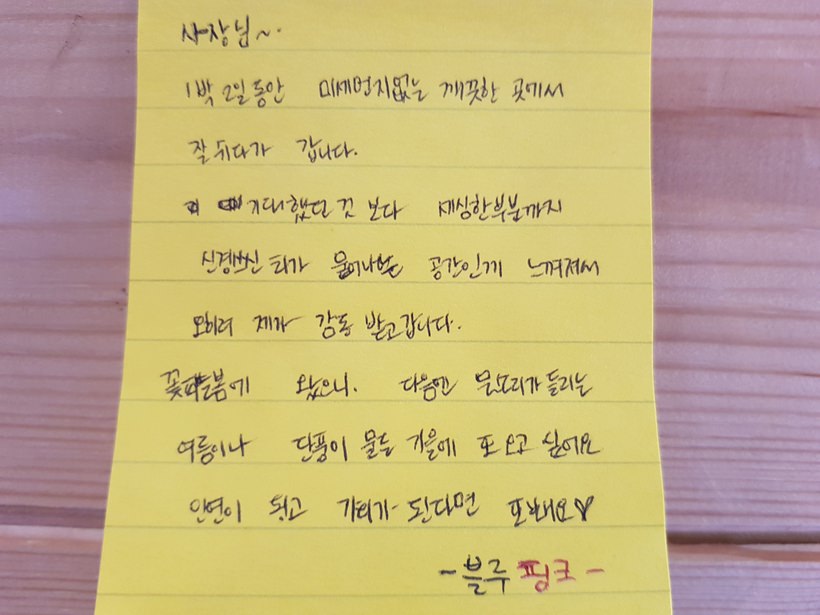 사장님~.
1박 2일 동안 미세먼지없는 깨끗한 곳에서
잘 쉬다가 갑니다.
기대했던 것 보다 세심한부분까지
신경쓰신 티가 묻어나는 공간인게 느껴져서
오히려 제가 감동 받고갑니다.
꽃피는봄에 왔으니. 다음엔 물소리가 들리는
여름이나 단풍이 물든 가을에 또 오고 싶어요
인연이 되고 기회가 된다면 또봬요♡
-블루 핑크-